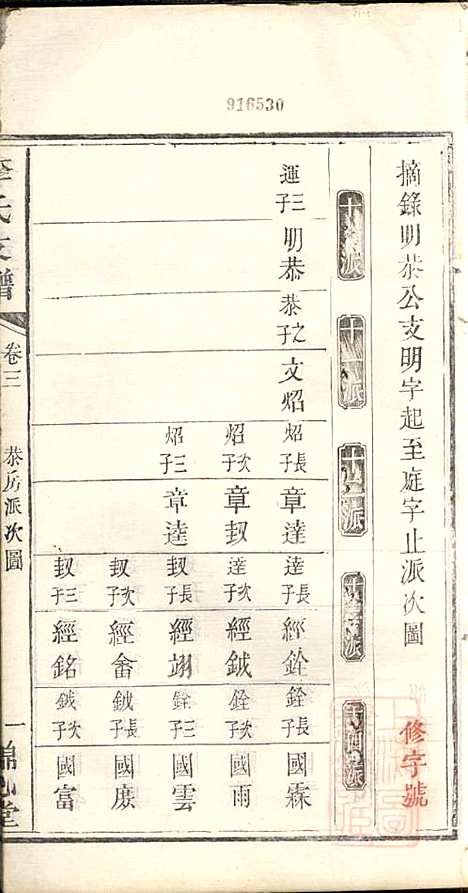 916530
摘錄明恭公支明字起至庭字止派次圖
修字號
十一派
十二派
十三派
十四派
運三子 明恭 恭之子 文炤 炤長子 章達 達長子 經銓 銓長子 國霖
炤次子 章釰 達次子 經鉞 銓次子 國雨
炤三子 章逵 釰長子 經翊 銓三子 國雲
釰次子 經畬 鉞長子 國庶
釰三子 經銘 鉞次子 國富
氏支譜
卷三
恭房派次圖
一
堂